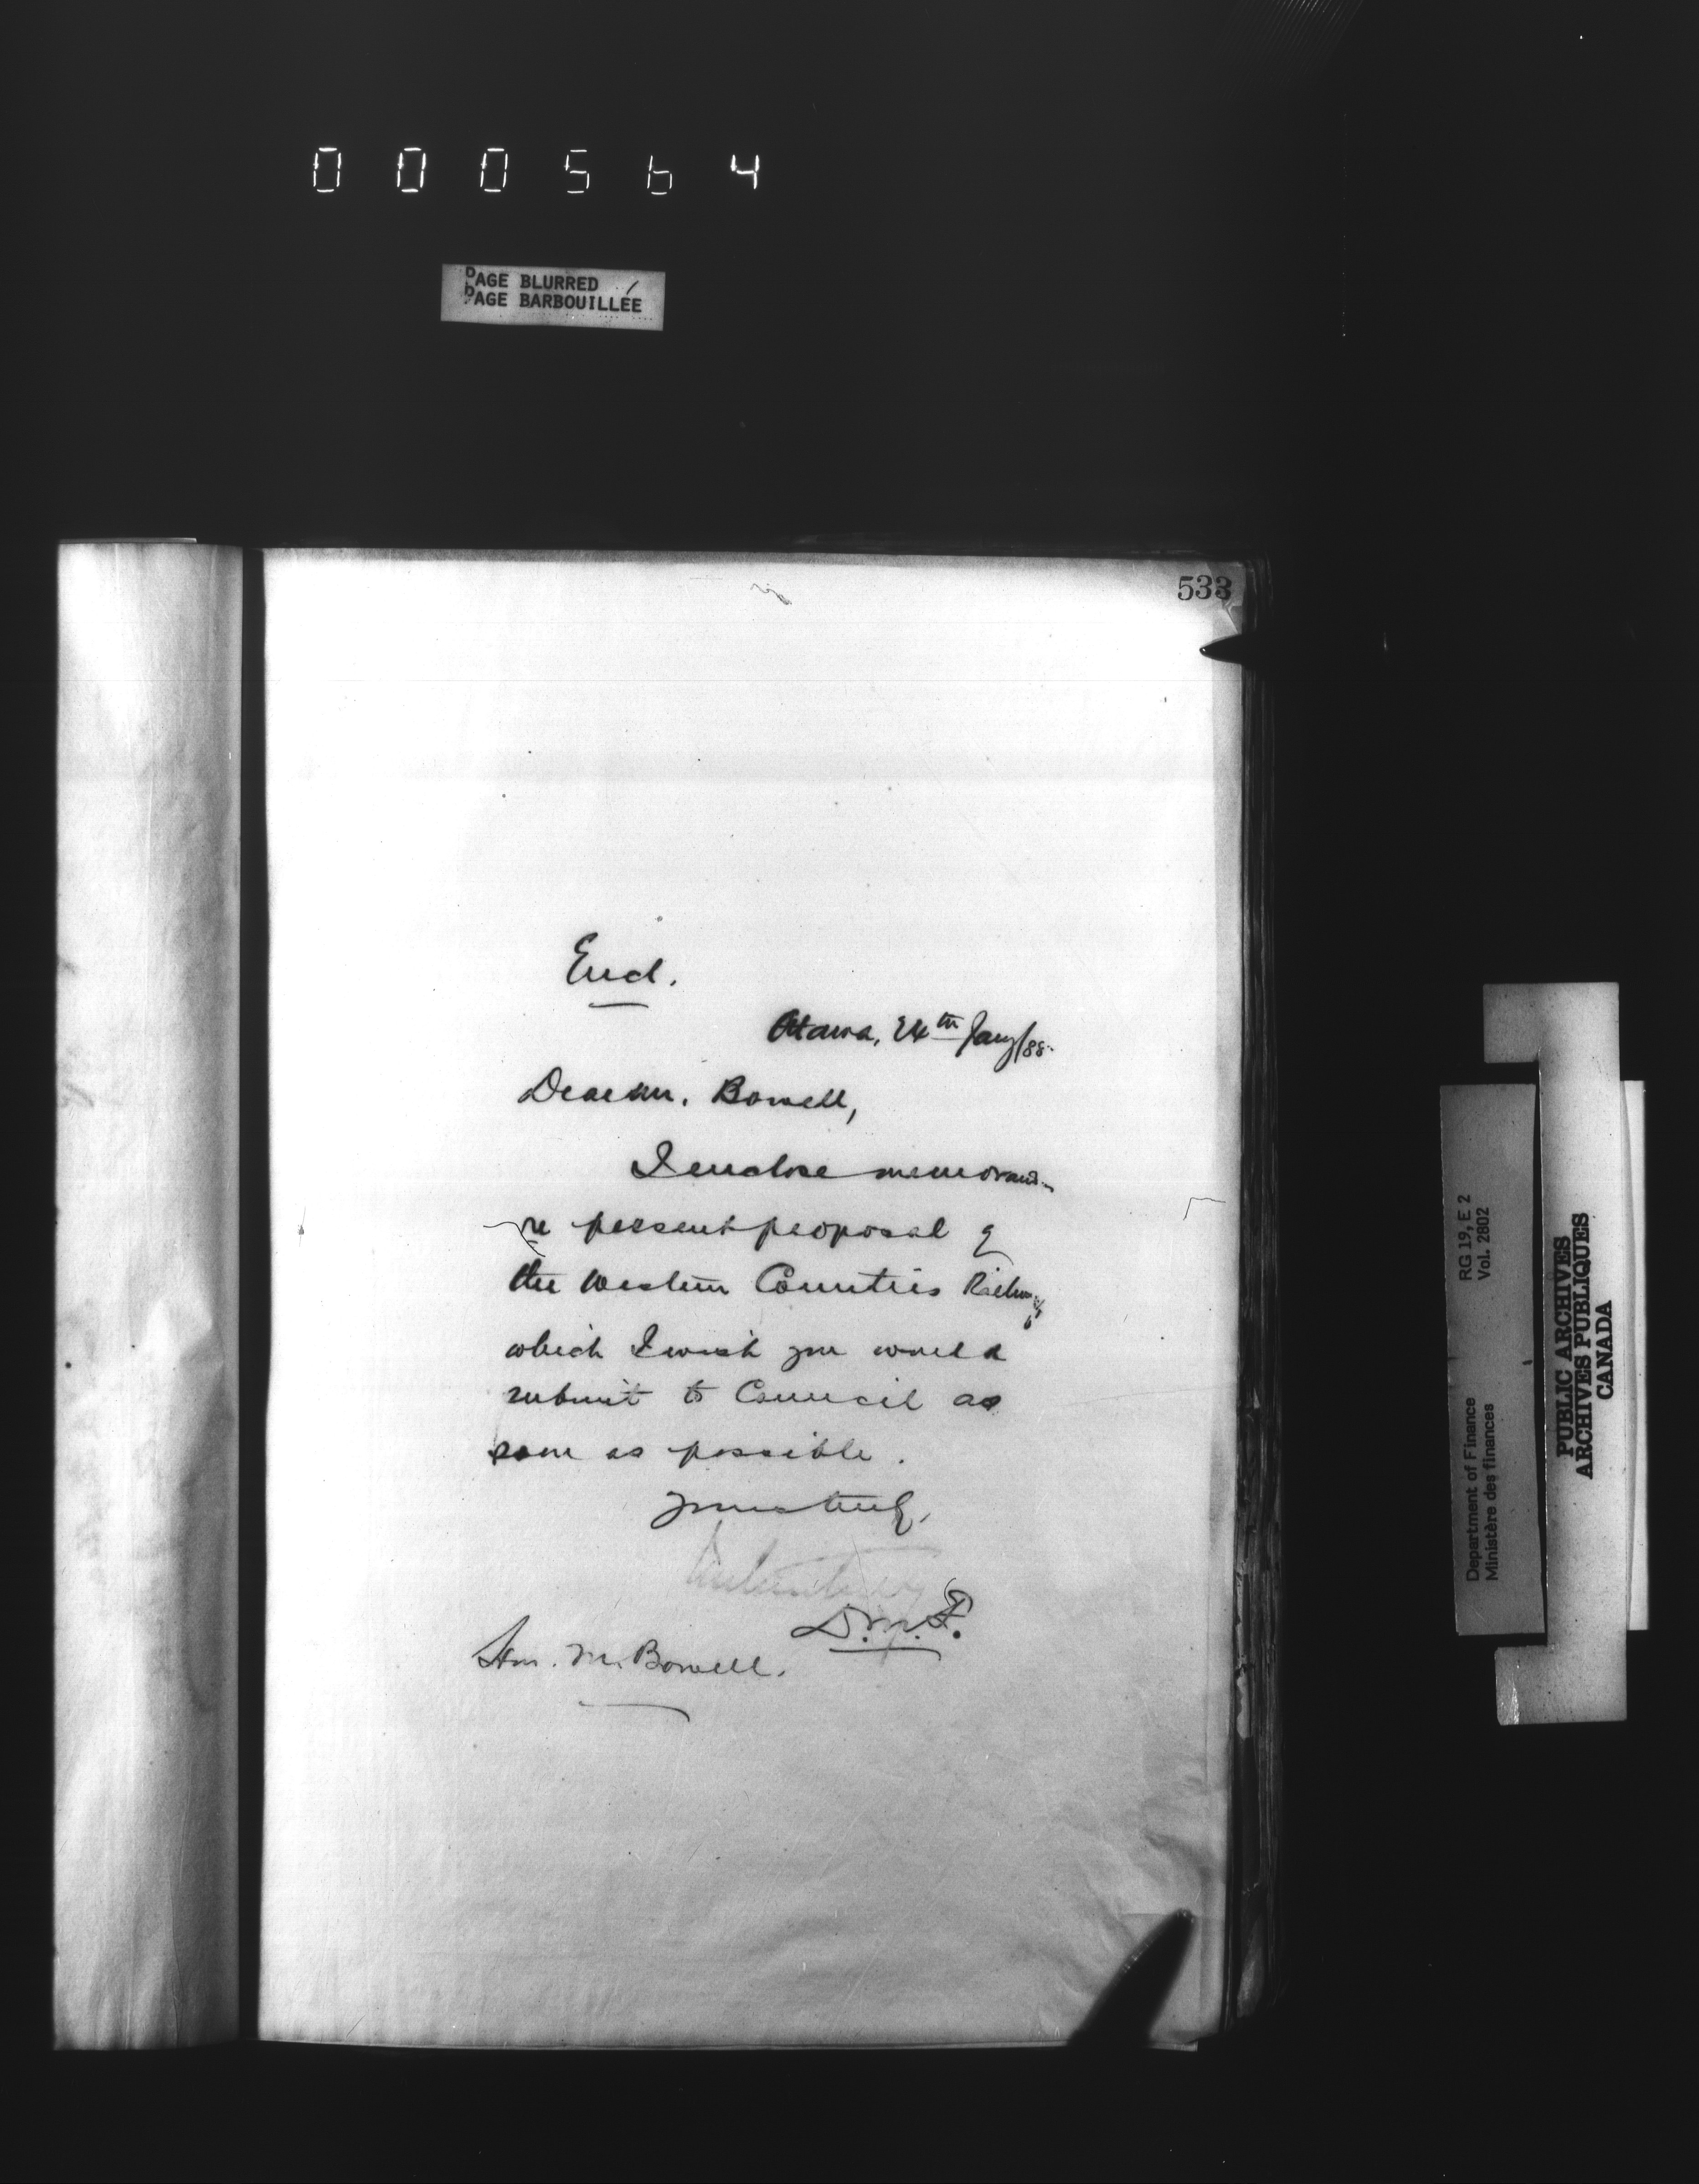 000564
PAGE BLURRED
PAGE BARBOUILLÉE
533
Encl.
Ottawa, 24th Jany/88.
Dear Mr. Bowell,
I enclose memorand.
re present proposal of
the Western Counties Railway,
which I wish you would
submit to Council as
soon as possible.
Yours truly,
D.M.F.
Hon. M. Bowell.
RG 19, E 2
Vol. 2802
Department of Finance
Ministère des finances
PUBLIC ARCHIVES
ARCHIVES PUBLIQUES
CANADA